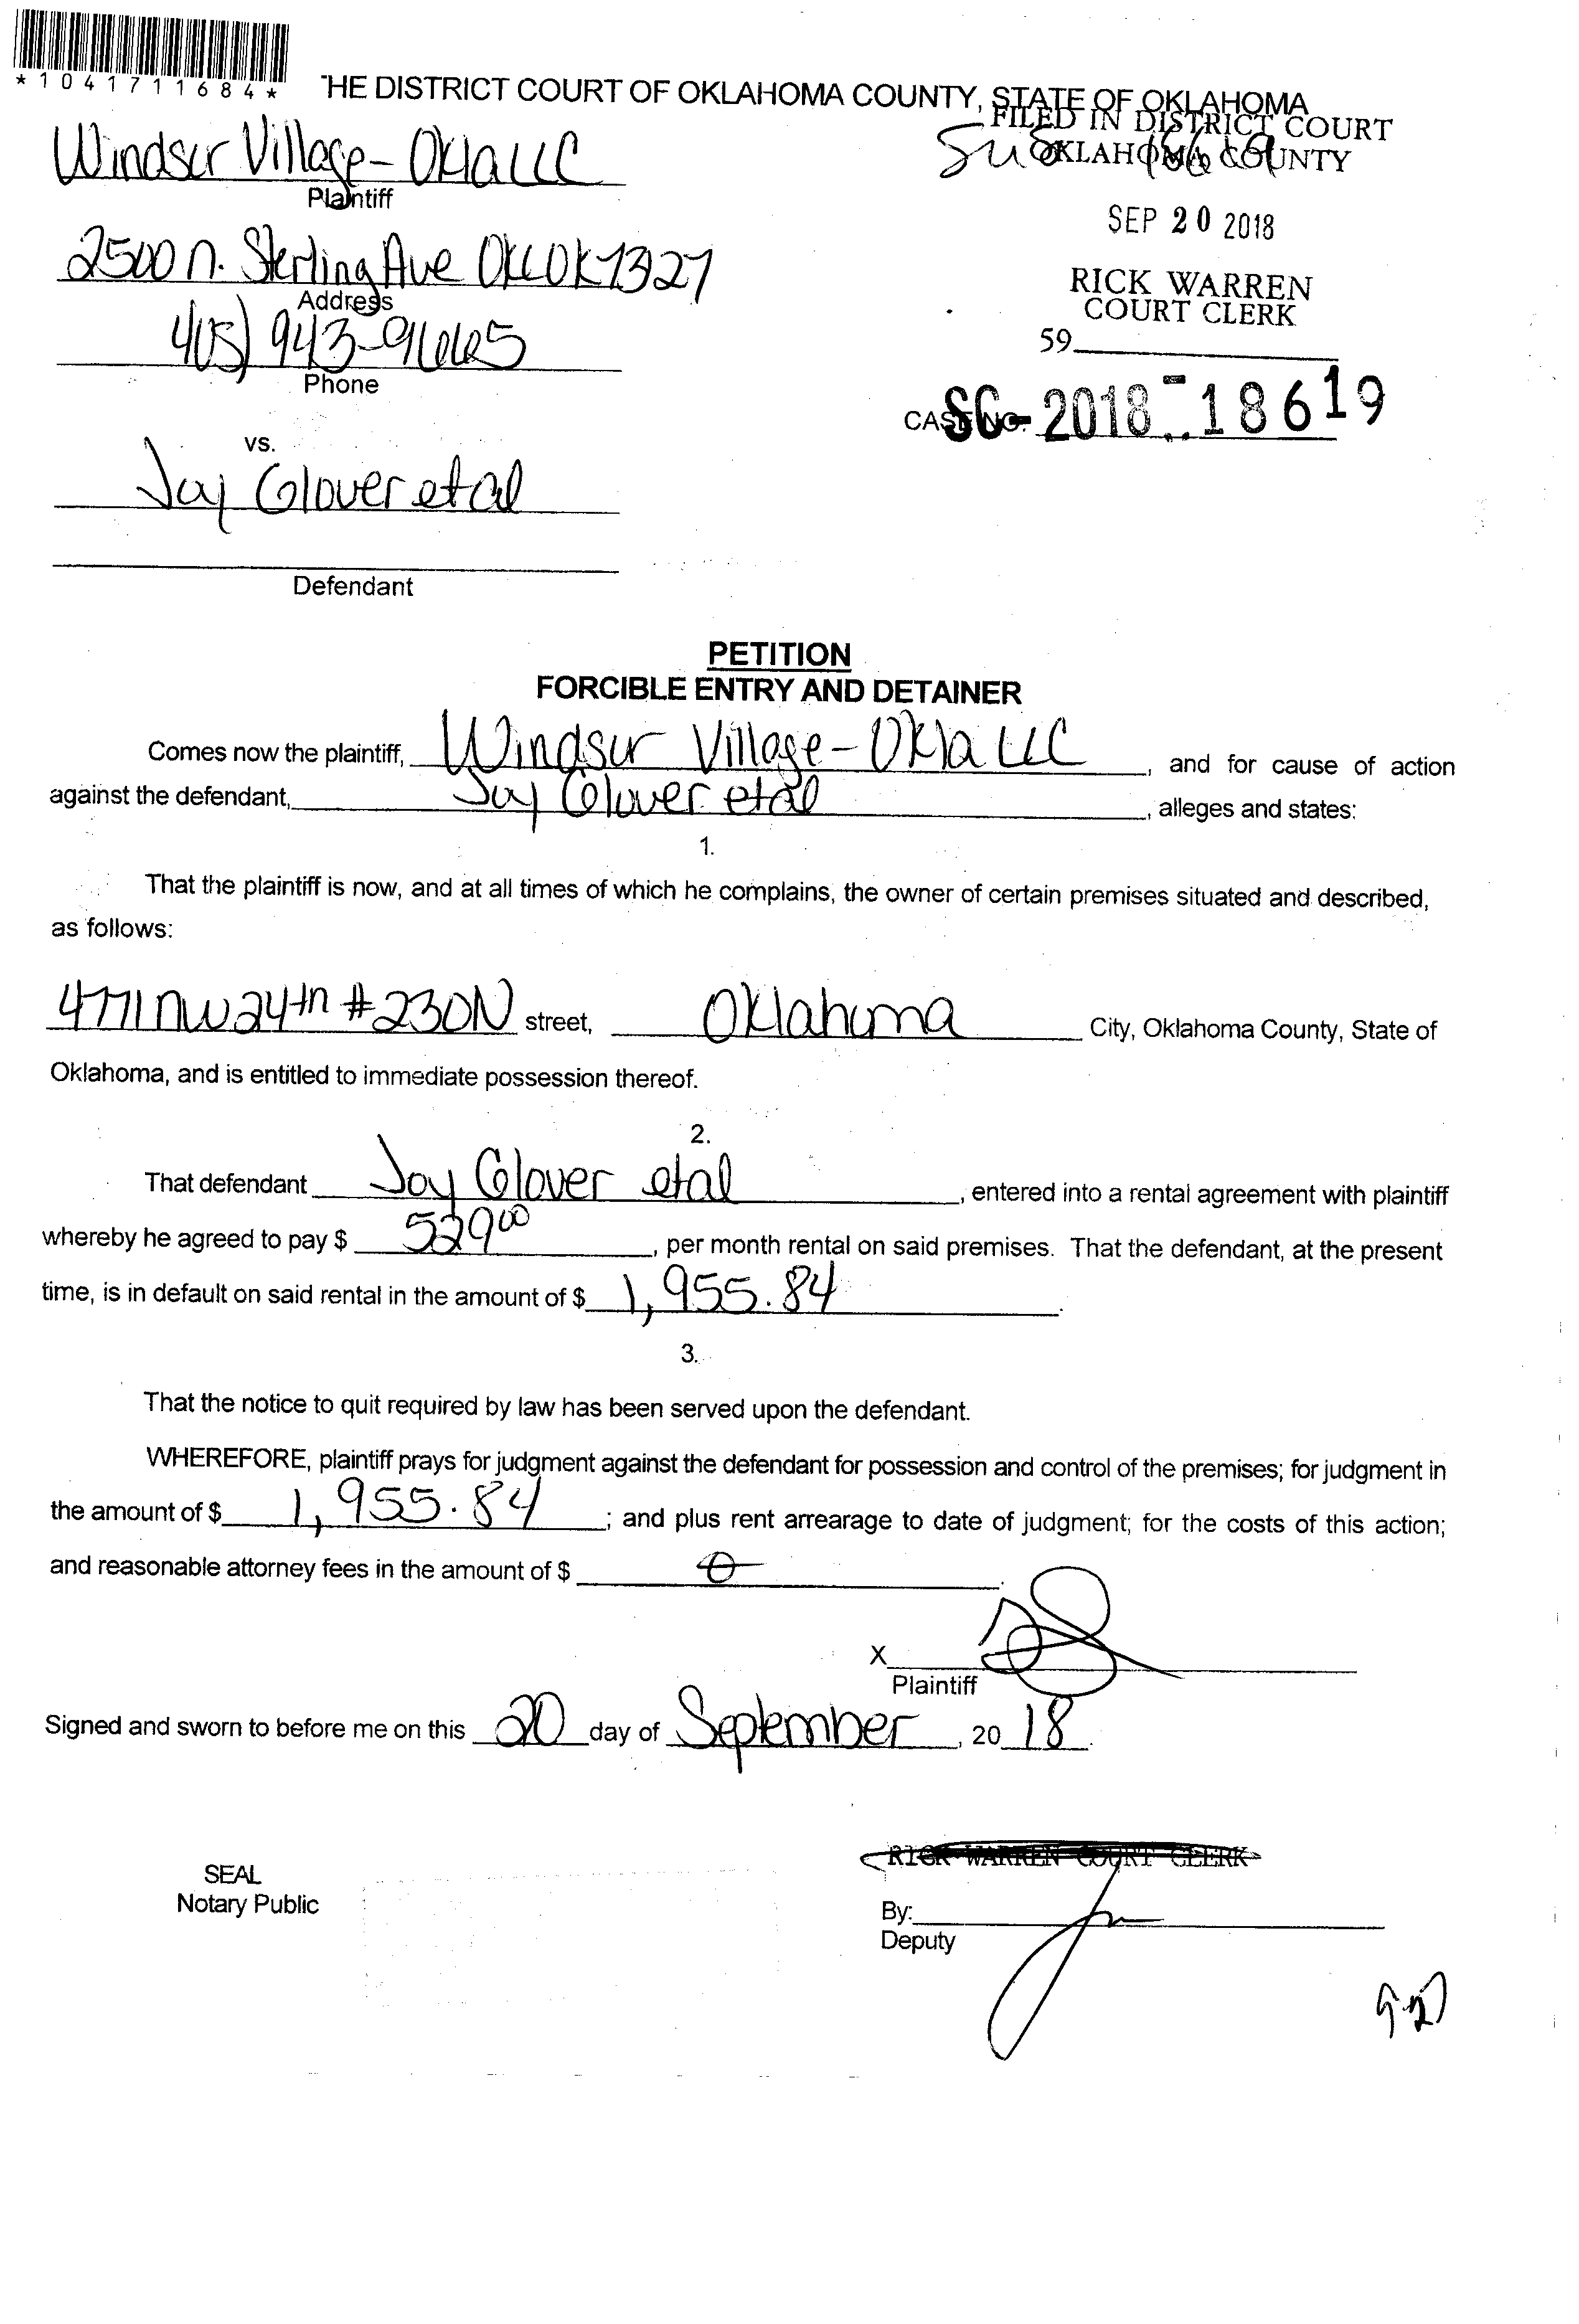 *1041711684*
THE DISTRICT COURT OF OKLAHOMA COUNTY, STATE OF OKLAHOMA
FILED IN DISTRICT COURT
OKLAHOMA COUNTY
Windsor Village-Okla LLC
Plaintiff
SEP 20 2018
2500 N. Sterling Ave OKC OK 73127
Address
RICK WARREN
COURT CLERK
405) 943-9665
Phone
59
CASE NO. SC-2018-18619
vs.
Joy Glover etal
Defendant
PETITION
FORCIBLE ENTRY AND DETAINER
Comes now the plaintiff, Windsor Village-Okla LLC, and for cause of action
against the defendant, Joy Glover etal, alleges and states:
1.
That the plaintiff is now, and at all times of which he complains, the owner of certain premises situated and described,
as follows:
4771 NW 24th #230N street, Oklahoma City, Oklahoma County, State of
Oklahoma, and is entitled to immediate possession thereof.
2.
That defendant Joy Glover etal, entered into a rental agreement with plaintiff
whereby he agreed to pay $ 529.00, per month rental on said premises. That the defendant, at the present
time, is in default on said rental in the amount of $ 1,955.84.
3.
That the notice to quit required by law has been served upon the defendant.
WHEREFORE, plaintiff prays for judgment against the defendant for possession and control of the premises; for judgment in
the amount of $ 1,955.84; and plus rent arrearage to date of judgment; for the costs of this action;
and reasonable attorney fees in the amount of $ 0.
X
Plaintiff
Signed and sworn to before me on this 20 day of September, 20 18.
RICK WARREN COURT CLERK
SEAL
Notary Public
By:
Deputy
9-27